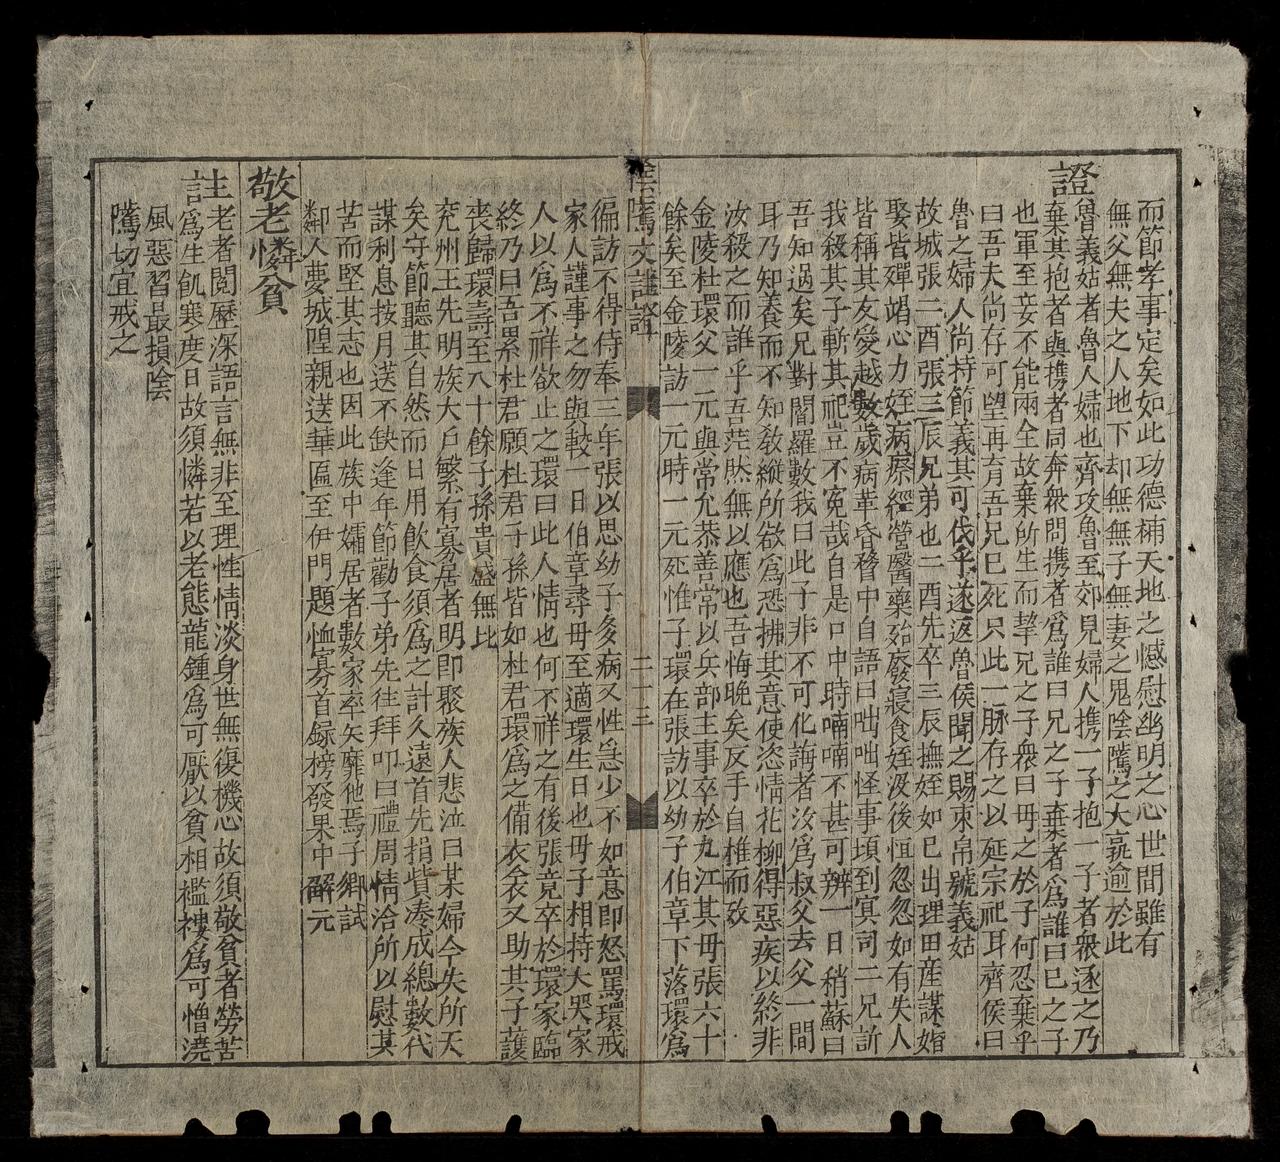 而節孝事定矣如此功德補天地之憾慰幽明之心世間雖有
無父無夫之人地下却無無子無妻之鬼陰隲之大孰逾於此
證魯義姑者魯人婦也齊攻魯至郊見婦人携一子抱一子者衆逐之乃
棄其抱者與携者同奔衆問携者爲誰曰兄之子棄者爲誰曰已之子
也軍至妾不能兩全故棄所生而挈兄之子衆曰母之於子何忍棄乎
曰吾夫尚存可望再育吾兄巳死只此一脉存之以延宗祀耳齊侯曰
魯之婦人尚持節義其可伐乎遂返魯侯聞之賜束帛號義姑
故城張二酉張三辰兄弟也二酉先卒三辰撫姪如巳出理田産謀婚
娶皆殫竭心力姪病瘵經營醫藥殆廢寢食姪沒後恒忽忽如有失人
皆稱其友愛越數歲病革昏瞀中自語曰咄咄怪事頃到冥司二兄訴
我殺其子斬其祀豈不寃哉自是口中時喃喃不甚可辨一日稍蘇曰
吾知過矣兄對閻羅數我曰此子非不可化誨者汝爲叔父去父一間
耳乃知養而不知敎縱所欲爲恐拂其意使恣情花柳得惡疾以終非
汝殺之而誰乎吾茫然無以應也吾悔晚矣反手自椎而歿
金陵杜環父一元與常允恭善常以兵部主事卒於九江其母張六十
餘矣至金陵訪一元時一元死惟子環在張訪以幼子伯章下落環爲
陰隲文註證
二十三
徧訪不得侍奉三年張以思幼子多病又性急少不如意即怒罵環戒
家人謹事之勿與較一日伯章尋母至適環生日也母子相持大哭家
人以爲不祥欲止之環曰此人情也何不祥之有後張竟卒於環家臨
終乃曰吾累杜君願杜君子孫皆如杜君環爲之備衣衾又助其子護
喪歸環壽至八十餘子孫貴盛無比
兖州王先明族大戶繁有寡居者明即聚族人悲泣曰某婦今失所天
矣守節聽其自然而日用飲食須爲之計久遠首先捐貲湊成總數代
謀利息按月送不缺逢年節勸子弟先往拜叩曰禮周情洽所以慰其
苦而堅其志也因此族中孀居者數家卒矢靡他焉子鄉試
鄰人夢城隍親送華匾至伊門題恤寡首録榜發果中解元
敬老憐貧
註老者閱歷深語言無非至理性情淡身世無復機心故須敬貧者勞苦
爲生飢寒度日故須憐若以老態龍鍾爲可厭以貧相襤褸爲可憎澆
風惡習最損陰
隲切宜戒之